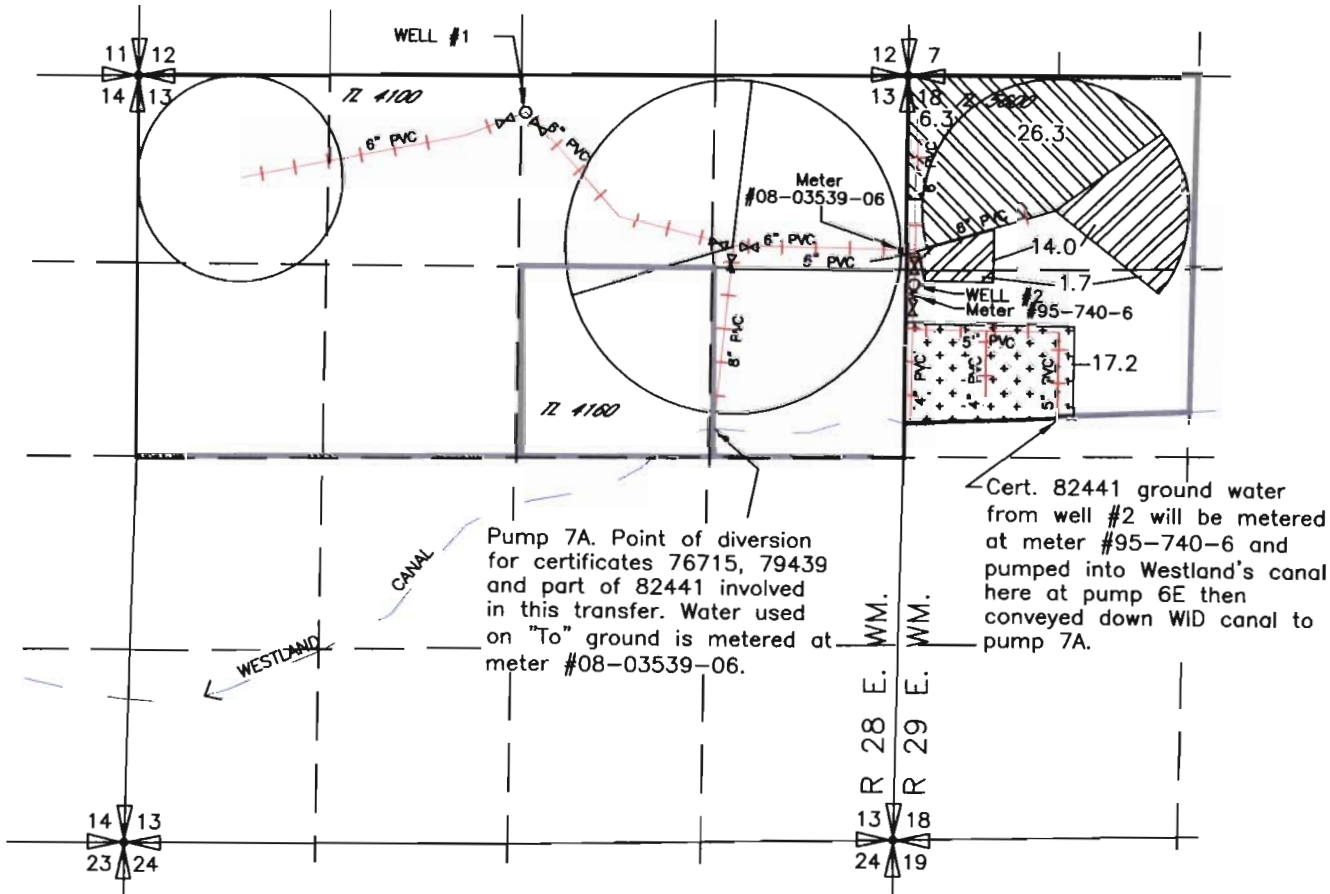 WELL #1
11 12
12 7
14 13
13 18
TL 4100
6.3
26.3
6" PVC
6" PVC
6"
Meter
#08-03539-06
8" PVC
6" PVC
6" PVC
14.0
1.7
WELL #2
Meter #95-740-6
8" PVC
5" PVC
17.2
4" PVC
4" PVC
5" PVC
TL 4160
Pump 7A. Point of diversion
for certificates 76715, 79439
and part of 82441 involved
in this transfer. Water used
on "To" ground is metered at
meter #08-03539-06.
Cert. 82441 ground water
from well #2 will be metered
at meter #95-740-6 and
pumped into Westland's canal
here at pump 6E then
conveyed down WID canal to
pump 7A.
CANAL
WESTLAND
R 28 E. WM.
R 29 E. WM.
14 13
13 18
23 24
24 19